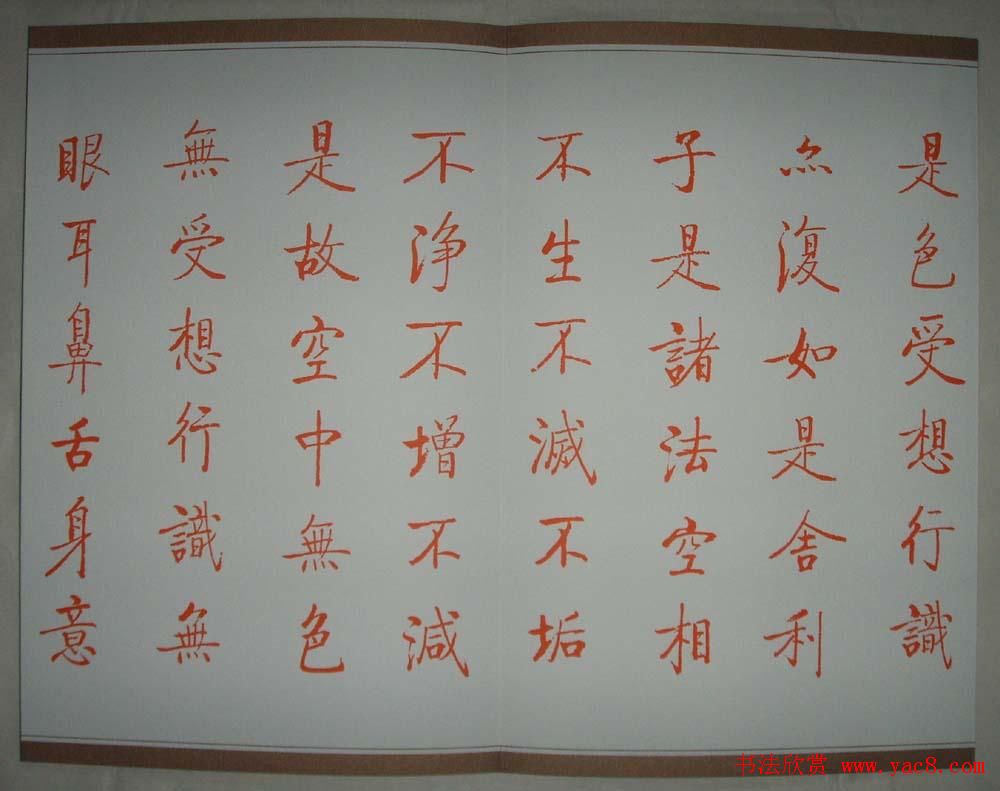 是色受想行識
亦復如是舍利
子是諸法空相
不生不滅不垢
不淨不增不減
是故空中無色
無受想行識無
眼耳鼻舌身意
书法欣赏 www.yac8.com